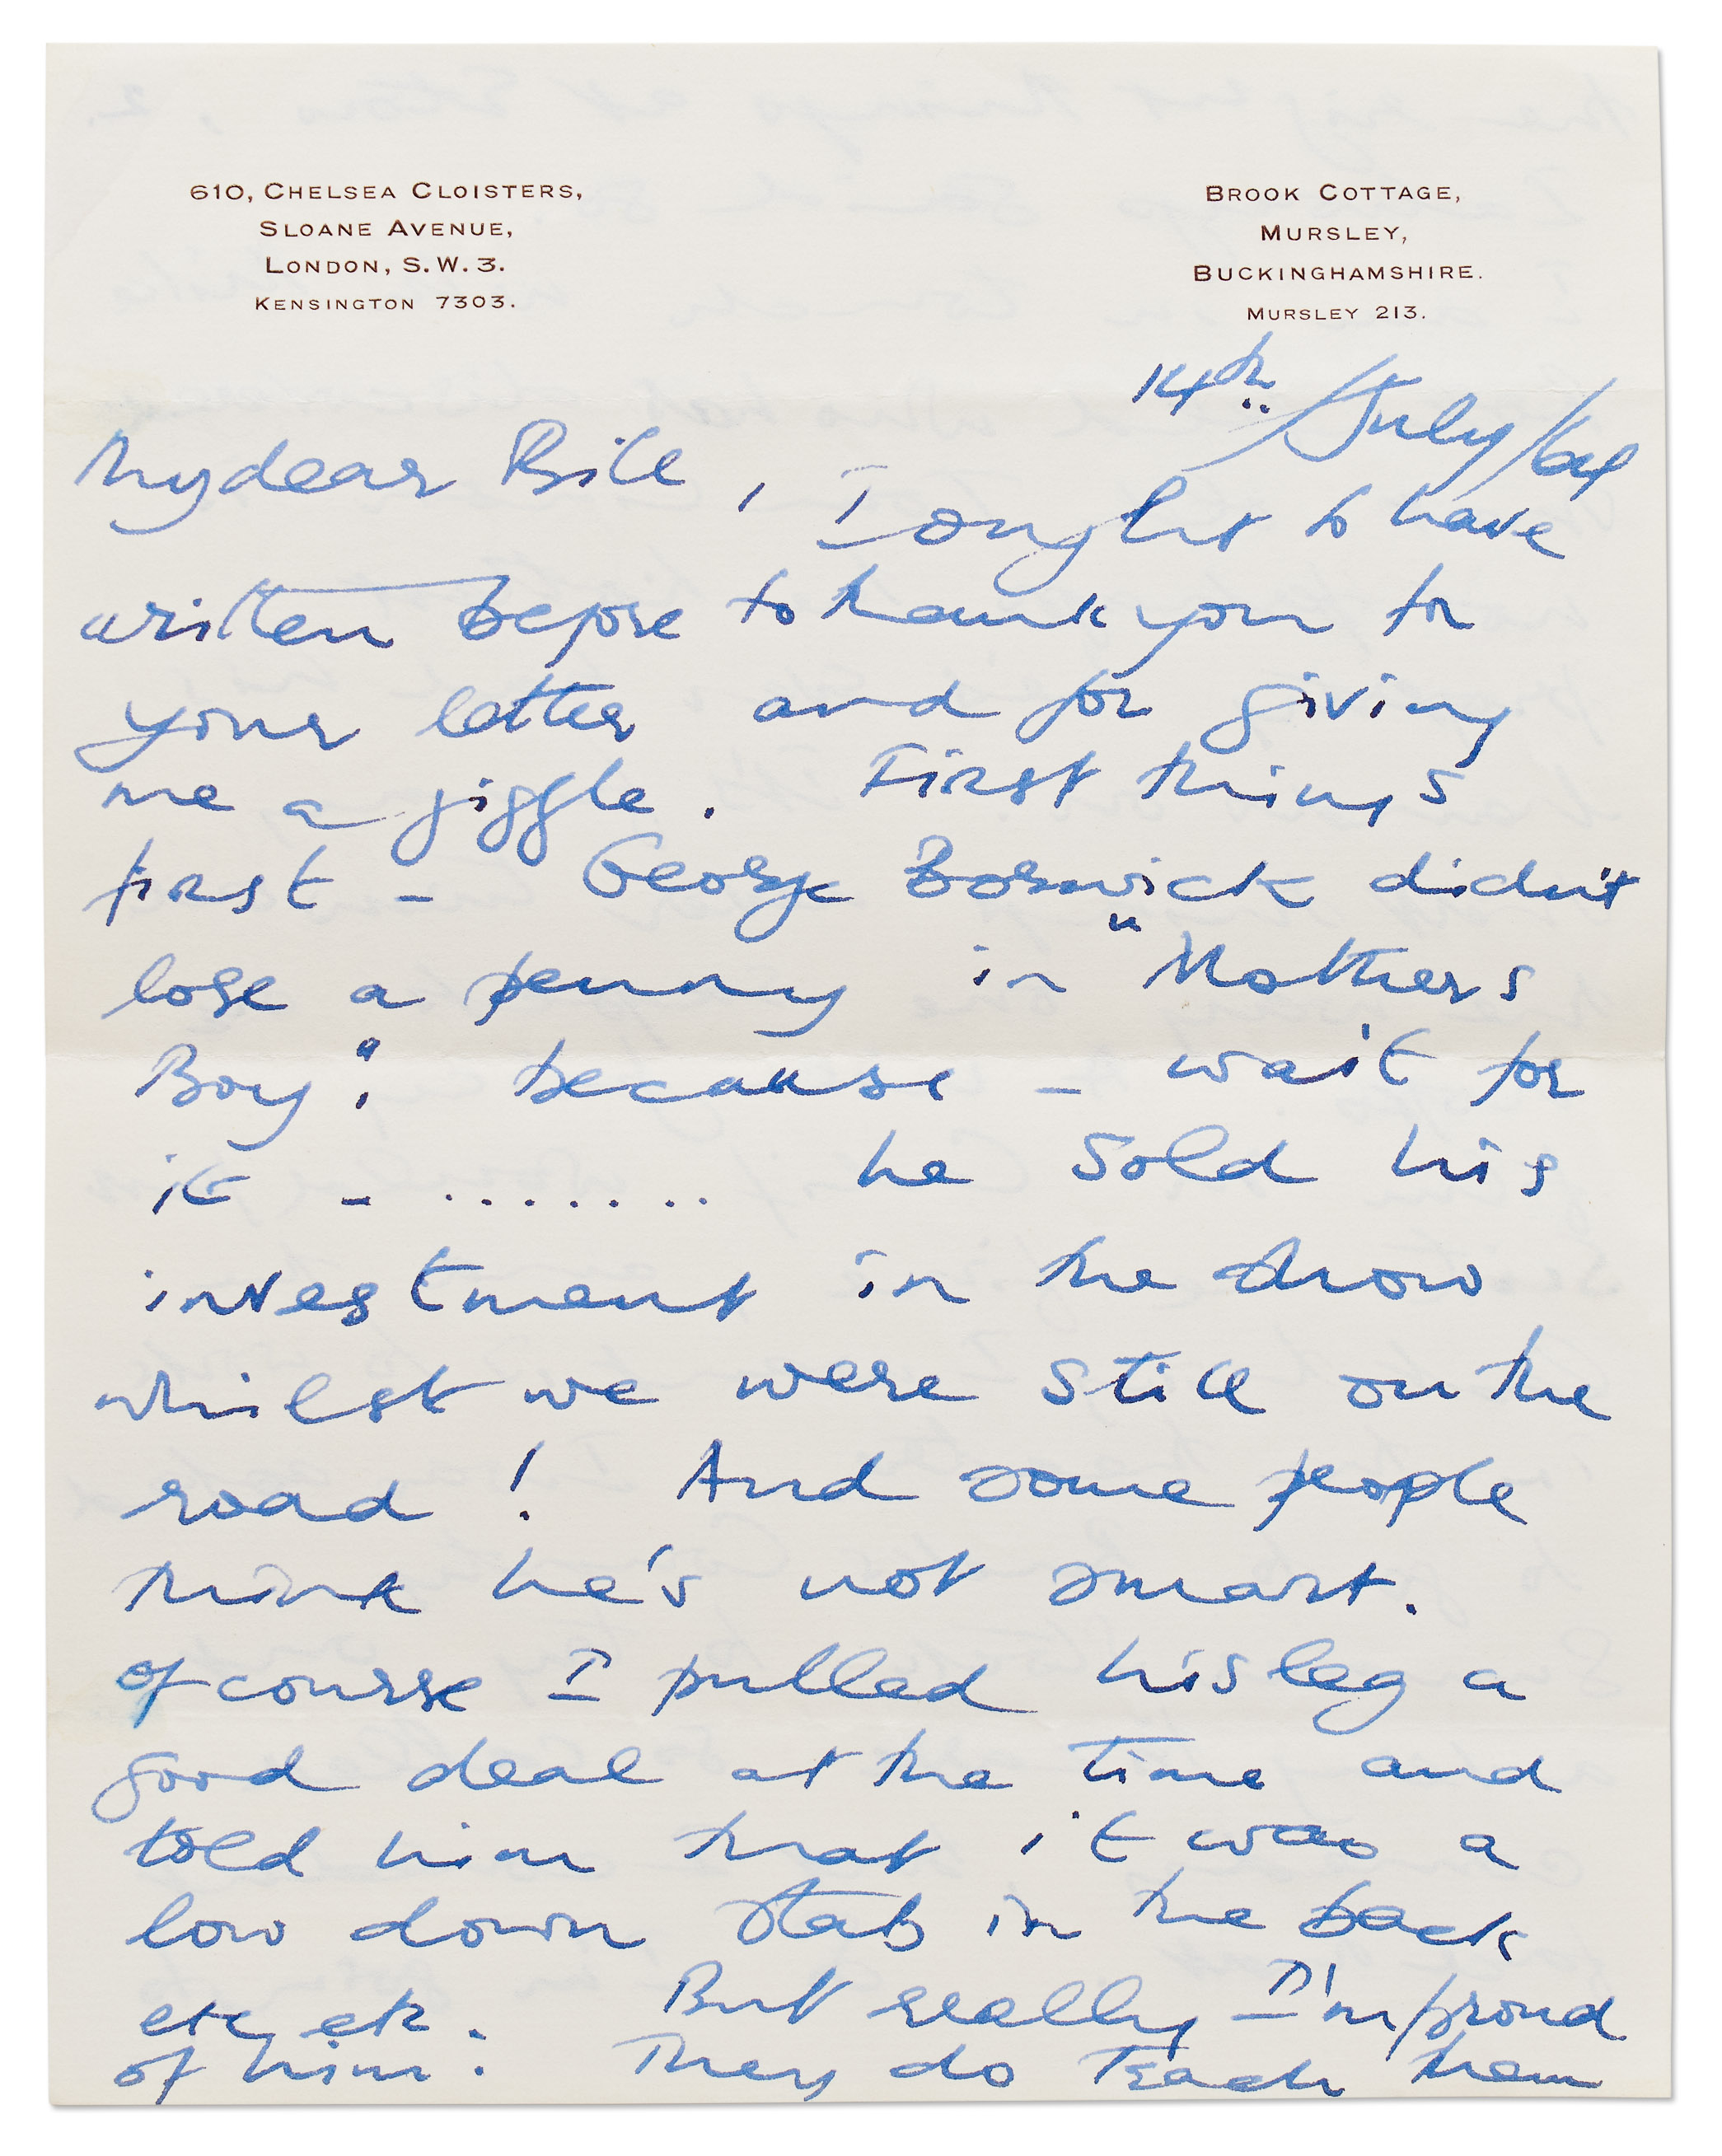 610, CHELSEA CLOISTERS,
SLOANE AVENUE,
LONDON, S.W.3.
KENSINGTON 7303.
BROOK COTTAGE,
MURSLEY,
BUCKINGHAMSHIRE.
MURSLEY 213.
14th July/64
My dear Bill, I ought to have
written before to thank you for
your letter and for giving
me a giggle. First things
first - George Borwick didn't
lose a penny in "Mothers
Boy". because - wait for
it - ........ he sold his
investment in the show
whilst we were still on the
road! And some people
think he's not smart.
Of course I pulled his leg a
good deal at the time and
told him that it was a
low down stab in the back
etc etc. But really I'm proud
of him. They do teach them